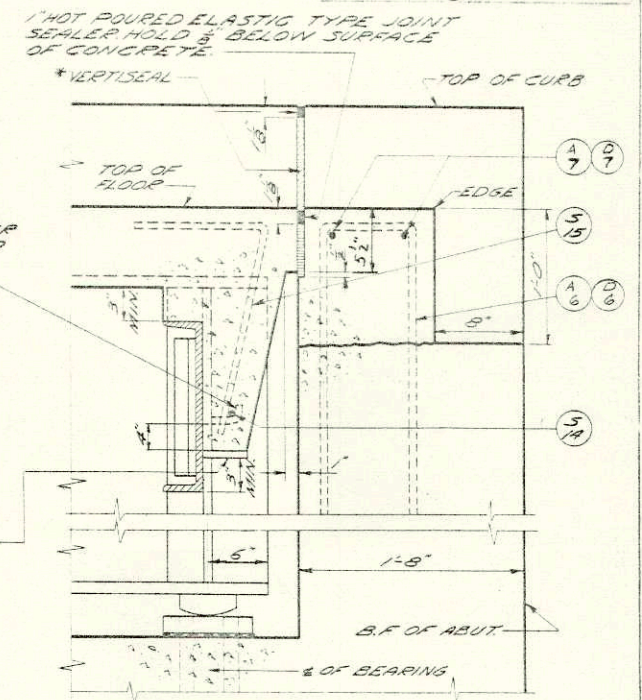 1"HOT POURED ELASTIC TYPE JOINT
SEALER. HOLD 1/8" BELOW SURFACE
OF CONCRETE.
*VERTISEAL
TOP OF CURB
A
7
D
7
TOP OF
FLOOR
EDGE
S
15
5 1/2"
1'-0"
A
6
D
6
3"
MIN.
8"
4"
S
14
3"
MIN.
1"
6"
1'-8"
B.F OF ABUT.
℄ OF BEARING